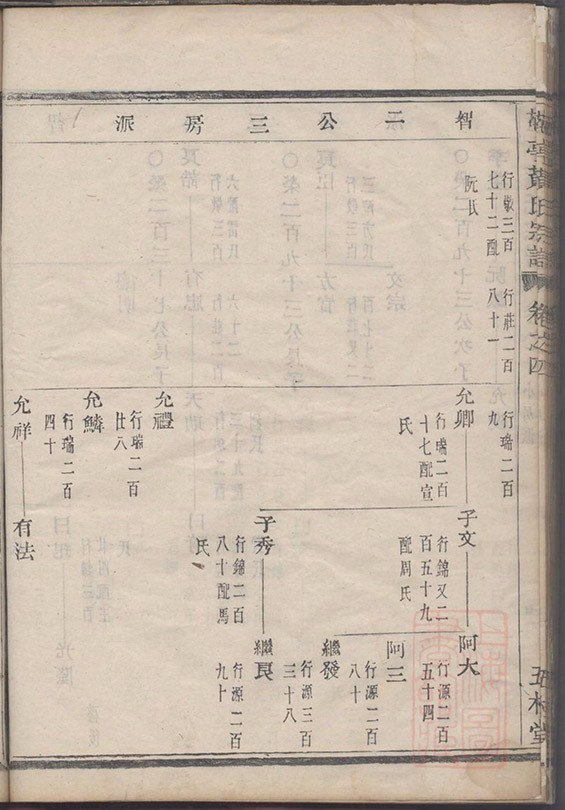 黃氏宗譜
卷之四
五桂堂
智二公三房派
行敬三百
七十二配
阮氏
行莊二百
八十一
行瑞二百
九
允卿
行瑞二百
十七配宣
氏
子文
行錦又二
百五十九
配周氏
阿大
行源二百
五十四
阿三
行源二百
八十
繼發
行源三百
三十八
子秀
行錦二百
八十配馬
氏
繼良
行源二百
九十
允禮
行瑞二百
廿八
允鱗
行瑞二百
四十
允祥
有法